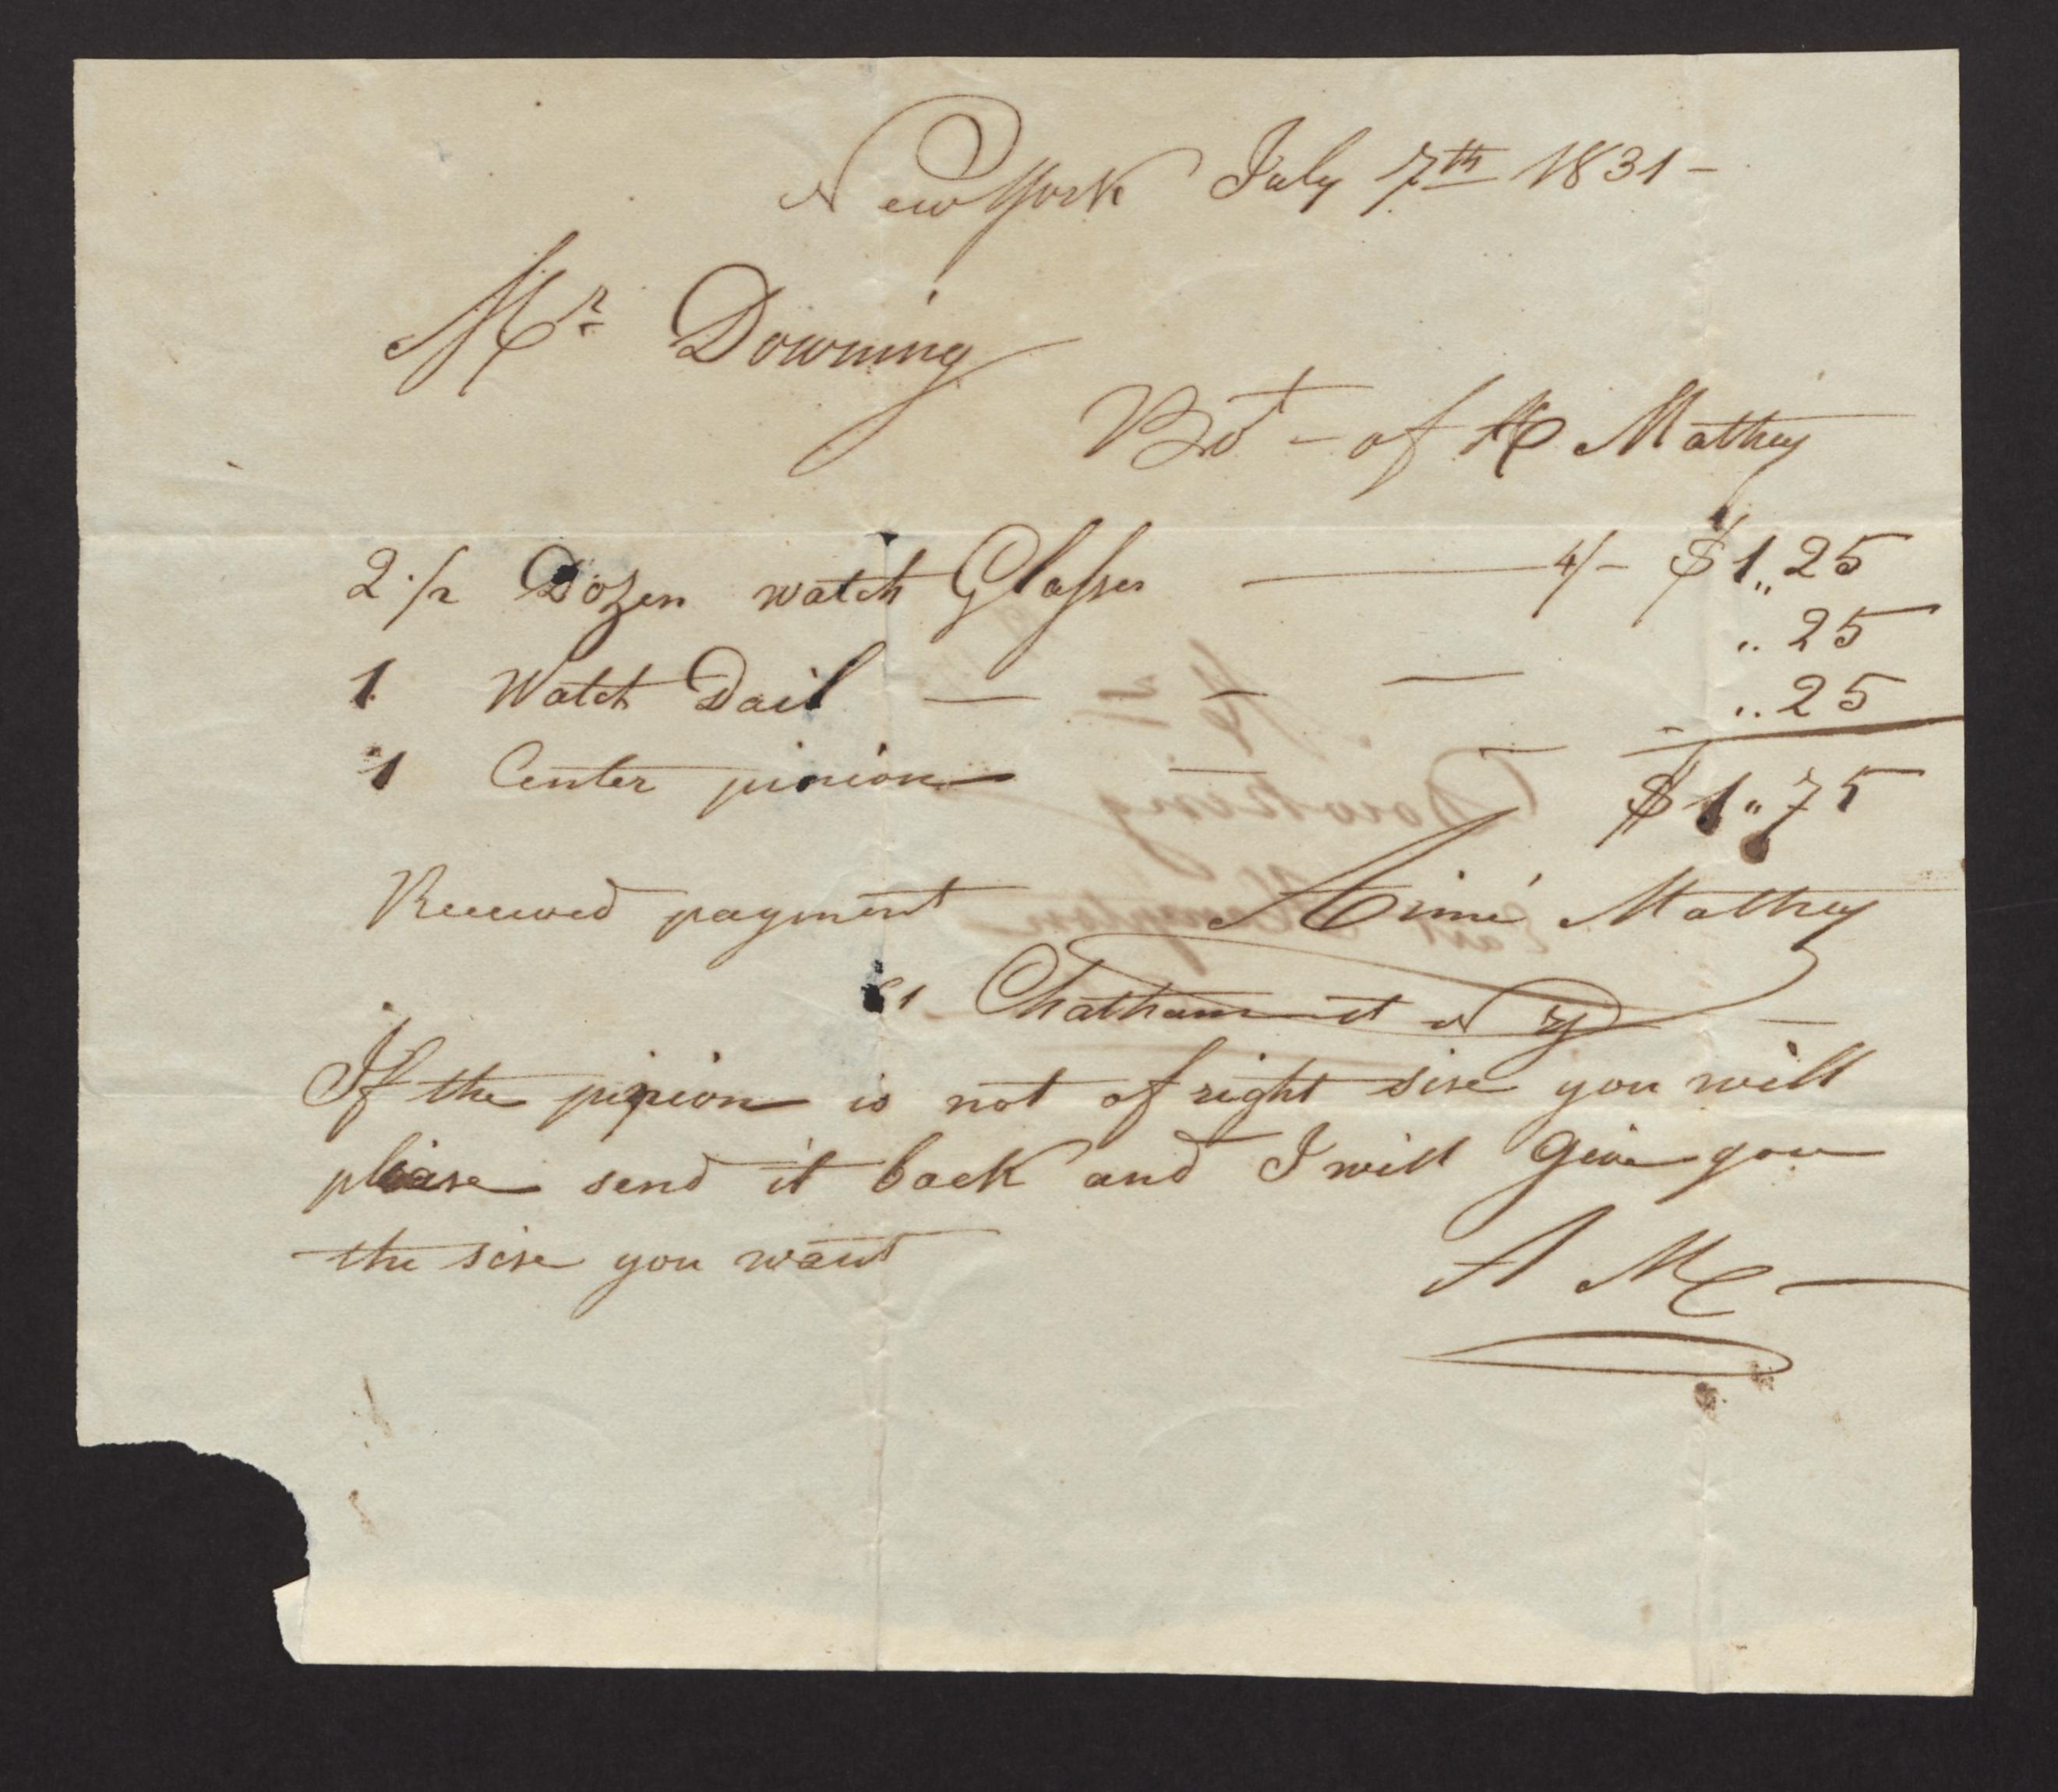 New York July 7th 1831 -
Mr Downing
Bot - of A Mathey
2 1/2 Dozen watch Glasses — 4/- $1,,25
1 Watch Dail — — — — ,,25
1 Center pinion — — ,,25
$1,,75
Received payment Aimé Mathey
Chatham st N Y —
If the pinion is not of right sise you will
please send it back and I will give you
the sise you want
A M —